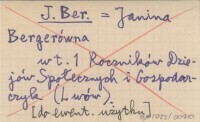 J. Ber. = Janina
Bergerówna
w t. 1 Roczników Dzie-
jów Społecznych i Gospodar-
czych (Lwów).
[do ewent. użytku]